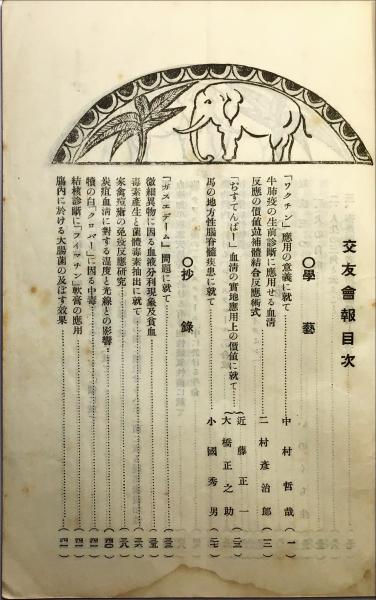 交友會報目次
○學藝
「ワクチン」應用の意義に就て……中村哲哉(一)
牛肺疫の生前診斷に應用せる血清
反應の價値竝補體結合反應術式……二村彥治郎(三)
「ぢすてんぱー」血清の實地應用上の價値に就て……近藤正一
大橋正之助(三)
馬の地方性腦脊髓疾患に就て……小國秀男(一七)
○抄錄
「ガスエデーム」問題に就て……
微細異物に因る血液分利現象及貧血……
毒素產生と菌體毒素抽出に就て……(二六)
家禽痘瘡の免疫反應硏究……(二八)
炭疽血清に對する溫度と光線との影響……(四〇)
犢の白「クロバー」に因る中毒……(四一)
結核診斷に「フイマチン」軟膏の應用……(四一)
腸內に於ける大腸菌の及ぼす效果……(四一)